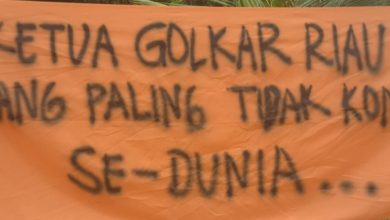 KETUA GOLKAR RIAU
ANG PALING TIDAK KON
SE-DUNIA...